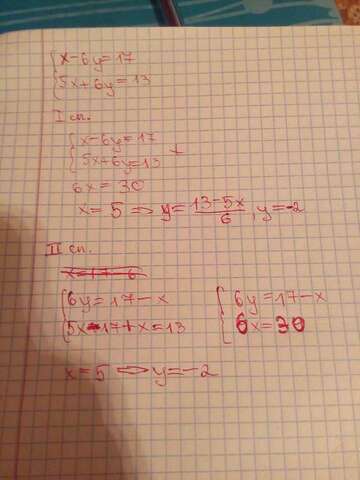 {x-6y=17
{5x+6y=13
I сп.
{x-6y=17
{5x+6y=13 +
6x=30
x=5 ⇒ y=(13-5x)/6, y=-2
II сп.
{6y=17-x
{5x-17+x=13
{6y=17-x
{6x=30
x=5 ⇒ y=-2